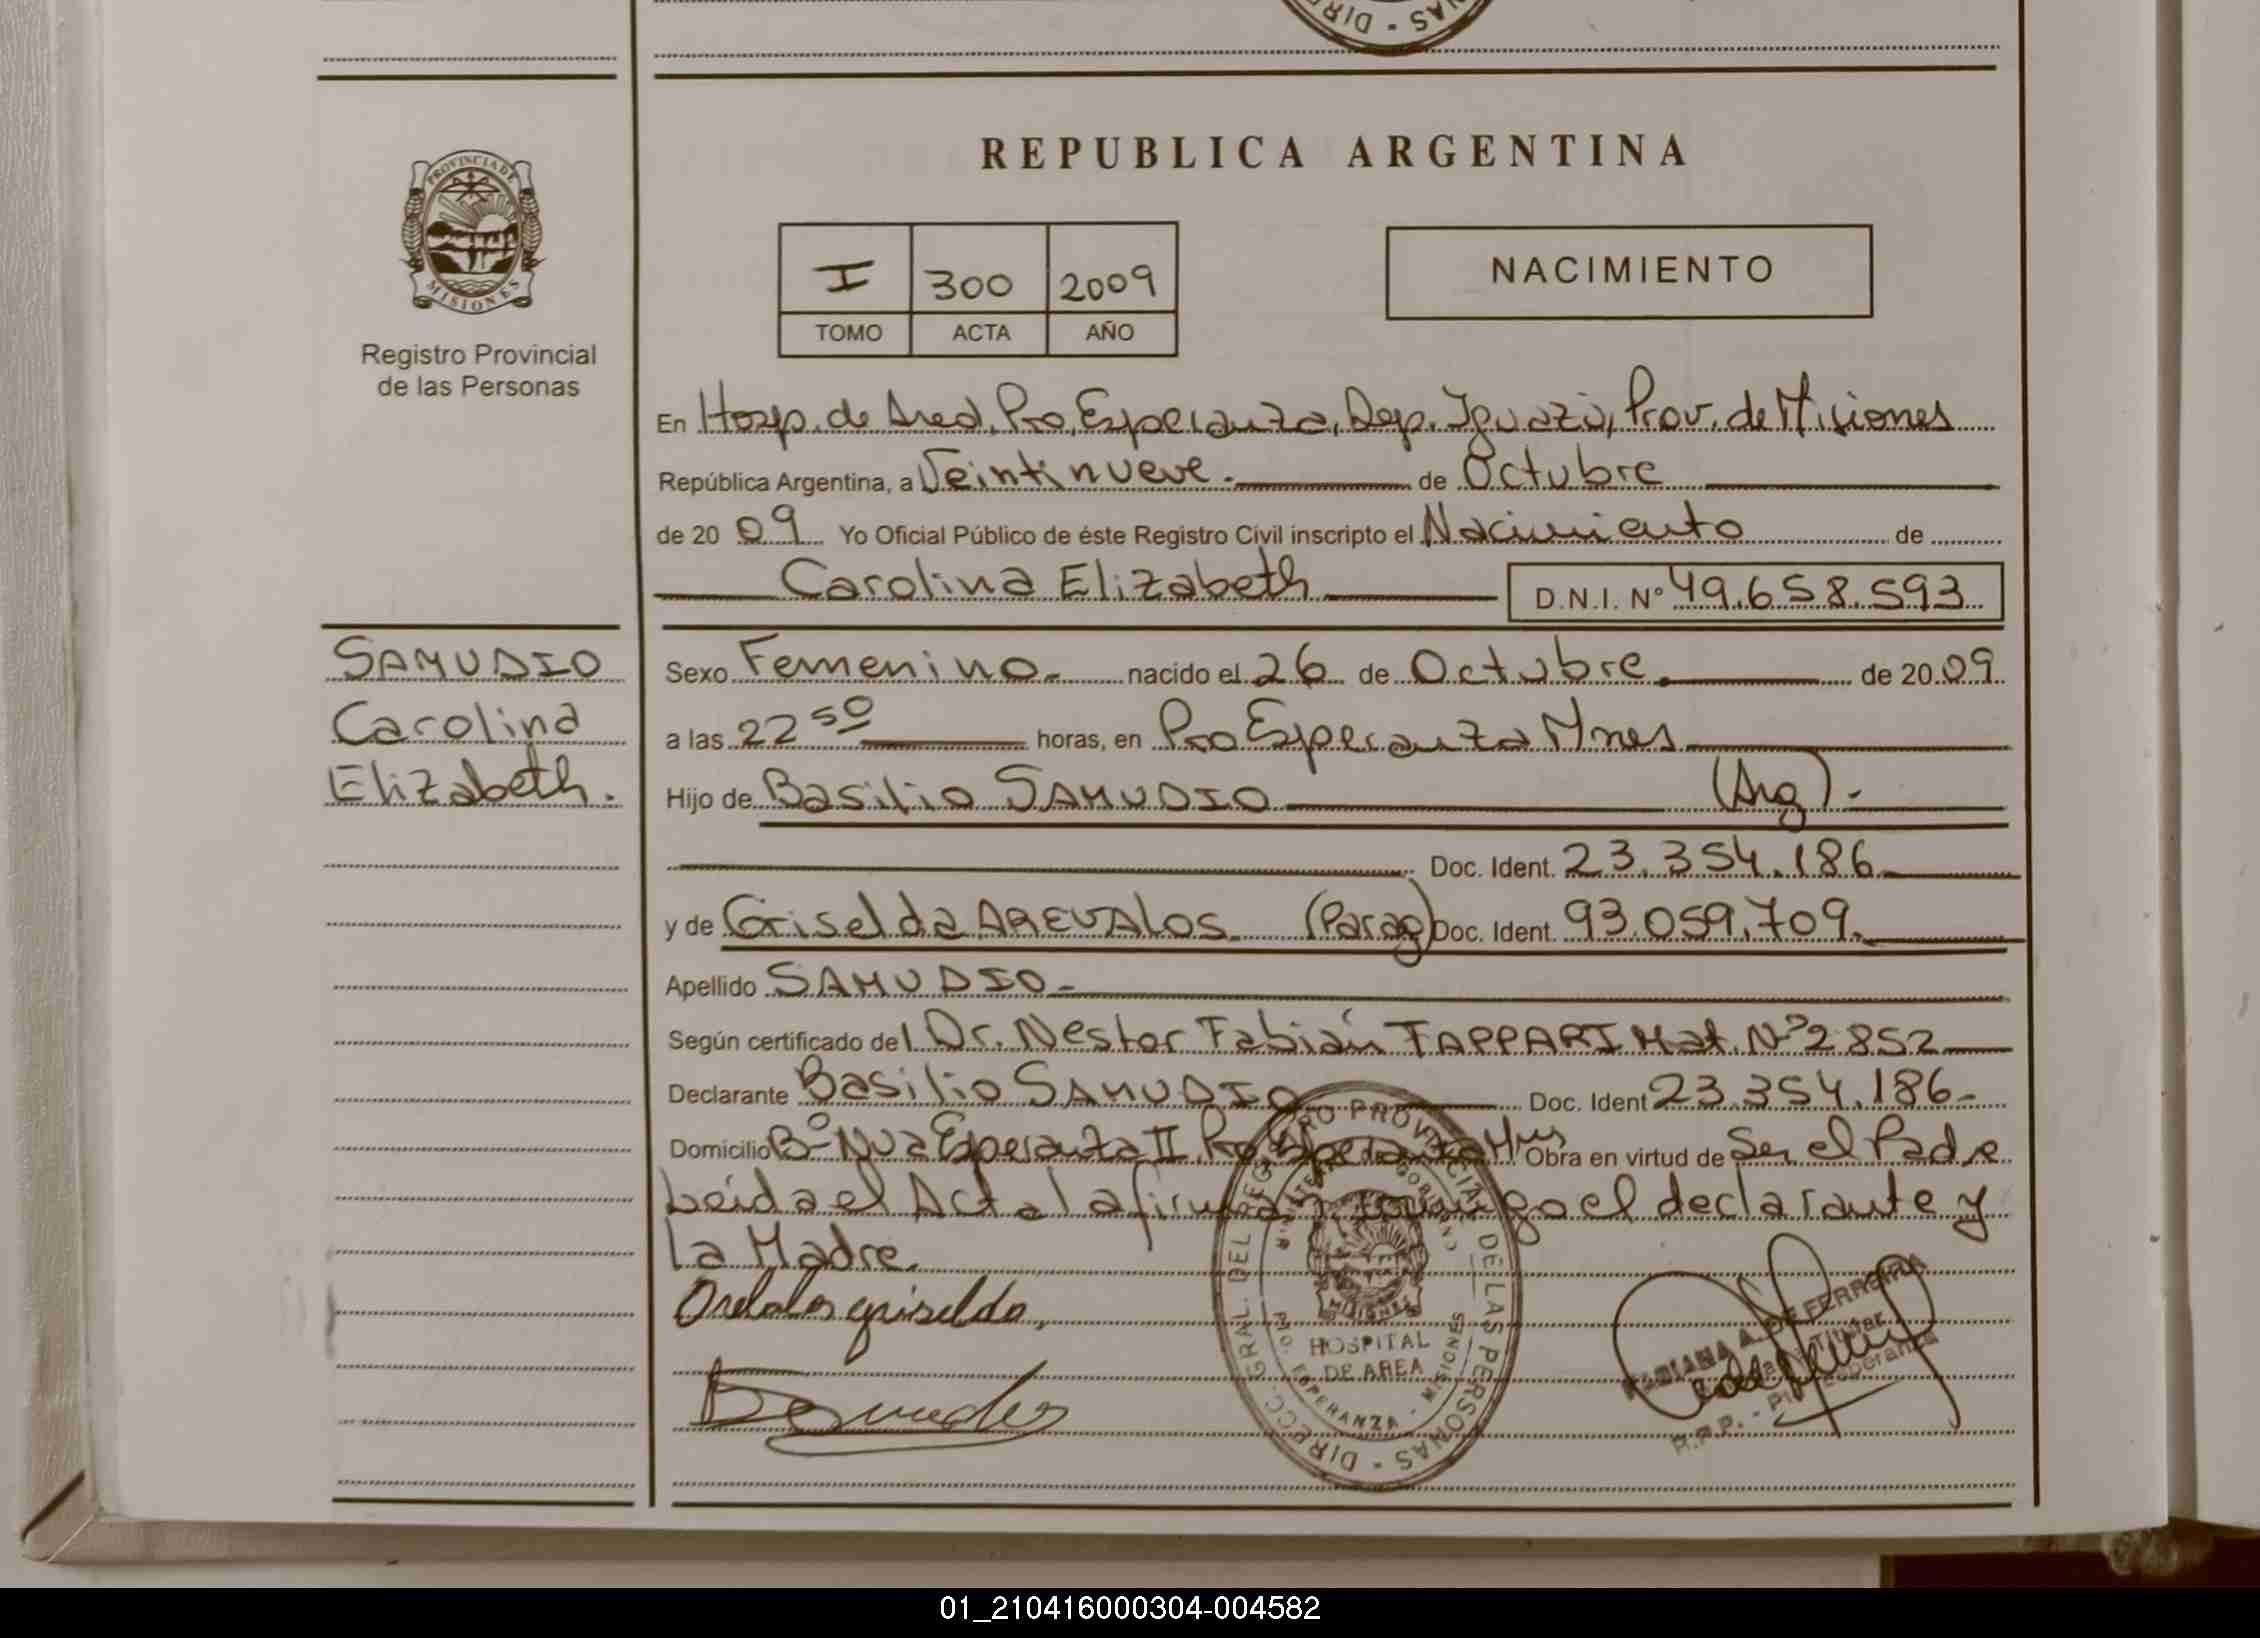 DIRE - NAS
REPUBLICA ARGENTINA
PROVINCIA DE
MISIONES
Registro Provincial
de las Personas
I 300 2009
TOMO ACTA AÑO
NACIMIENTO
En Hosp. de Area, Pto. Esperanza, Dep. Iguazú, Prov. de Misiones
República Argentina, a Veintinueve. de Octubre
de 20 09 Yo Oficial Público de éste Registro Civil inscripto el Nacimiento de
Carolina Elizabeth D.N.I. Nº 49.658.593
SAMUDIO
Carolina
Elizabeth.
Sexo Femenino.- nacido el 26 de Octubre de 20 09
a las 22 50 horas, en Pto Esperanza Mnes
Hijo de Basilio SAMUDIO (Arg).-
Doc. Ident. 23.354.186
y de Griselda AREVALOS. (Parag) Doc. Ident. 93.059.709.
Apellido SAMUDIO.-
Según certificado del Dr. Nestor Fabián TAPPARI Mat. Nº 2852
Declarante Basilio SAMUDIO Doc. Ident 23.354.186-
Domicilio Bº Nva Esperanza II Pto Esperanza Mnes Obra en virtud de Ser el Padre
Leida el Acta la firman conmigo el declarante y
la Madre.
Arebalos griselda,
DIRECC. GRAL. DEL REGISTRO PROVINCIAL DE LAS PERSONAS
MISIONES
HOSPITAL
DE AREA
PTO. ESPERANZA - MISIONES
FABIANA A. DE FERREIRA
Titular
R.P.P. - Pto. Esperanza
01_210416000304-004582